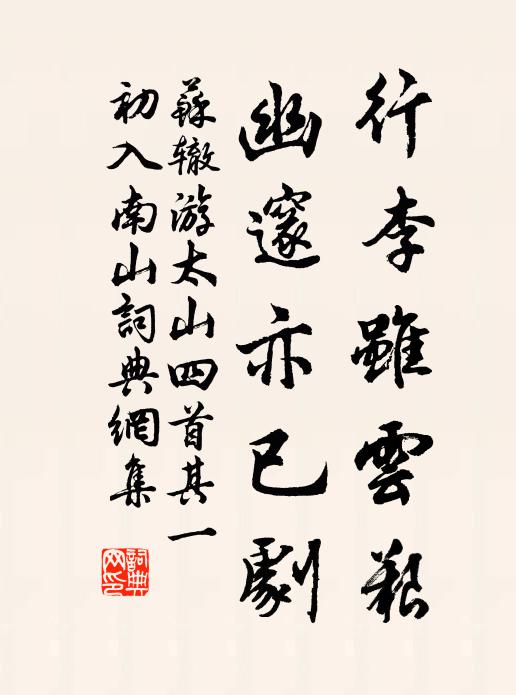 行李雖雲艱
幽邃亦已劇
蘇轍游太山四首其一
初入南山詞典網集
詞典網印